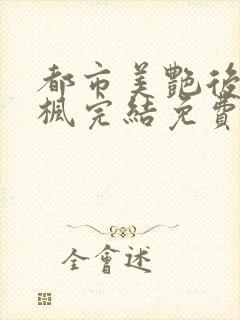 都市美艷後
楓完結免費
全會述